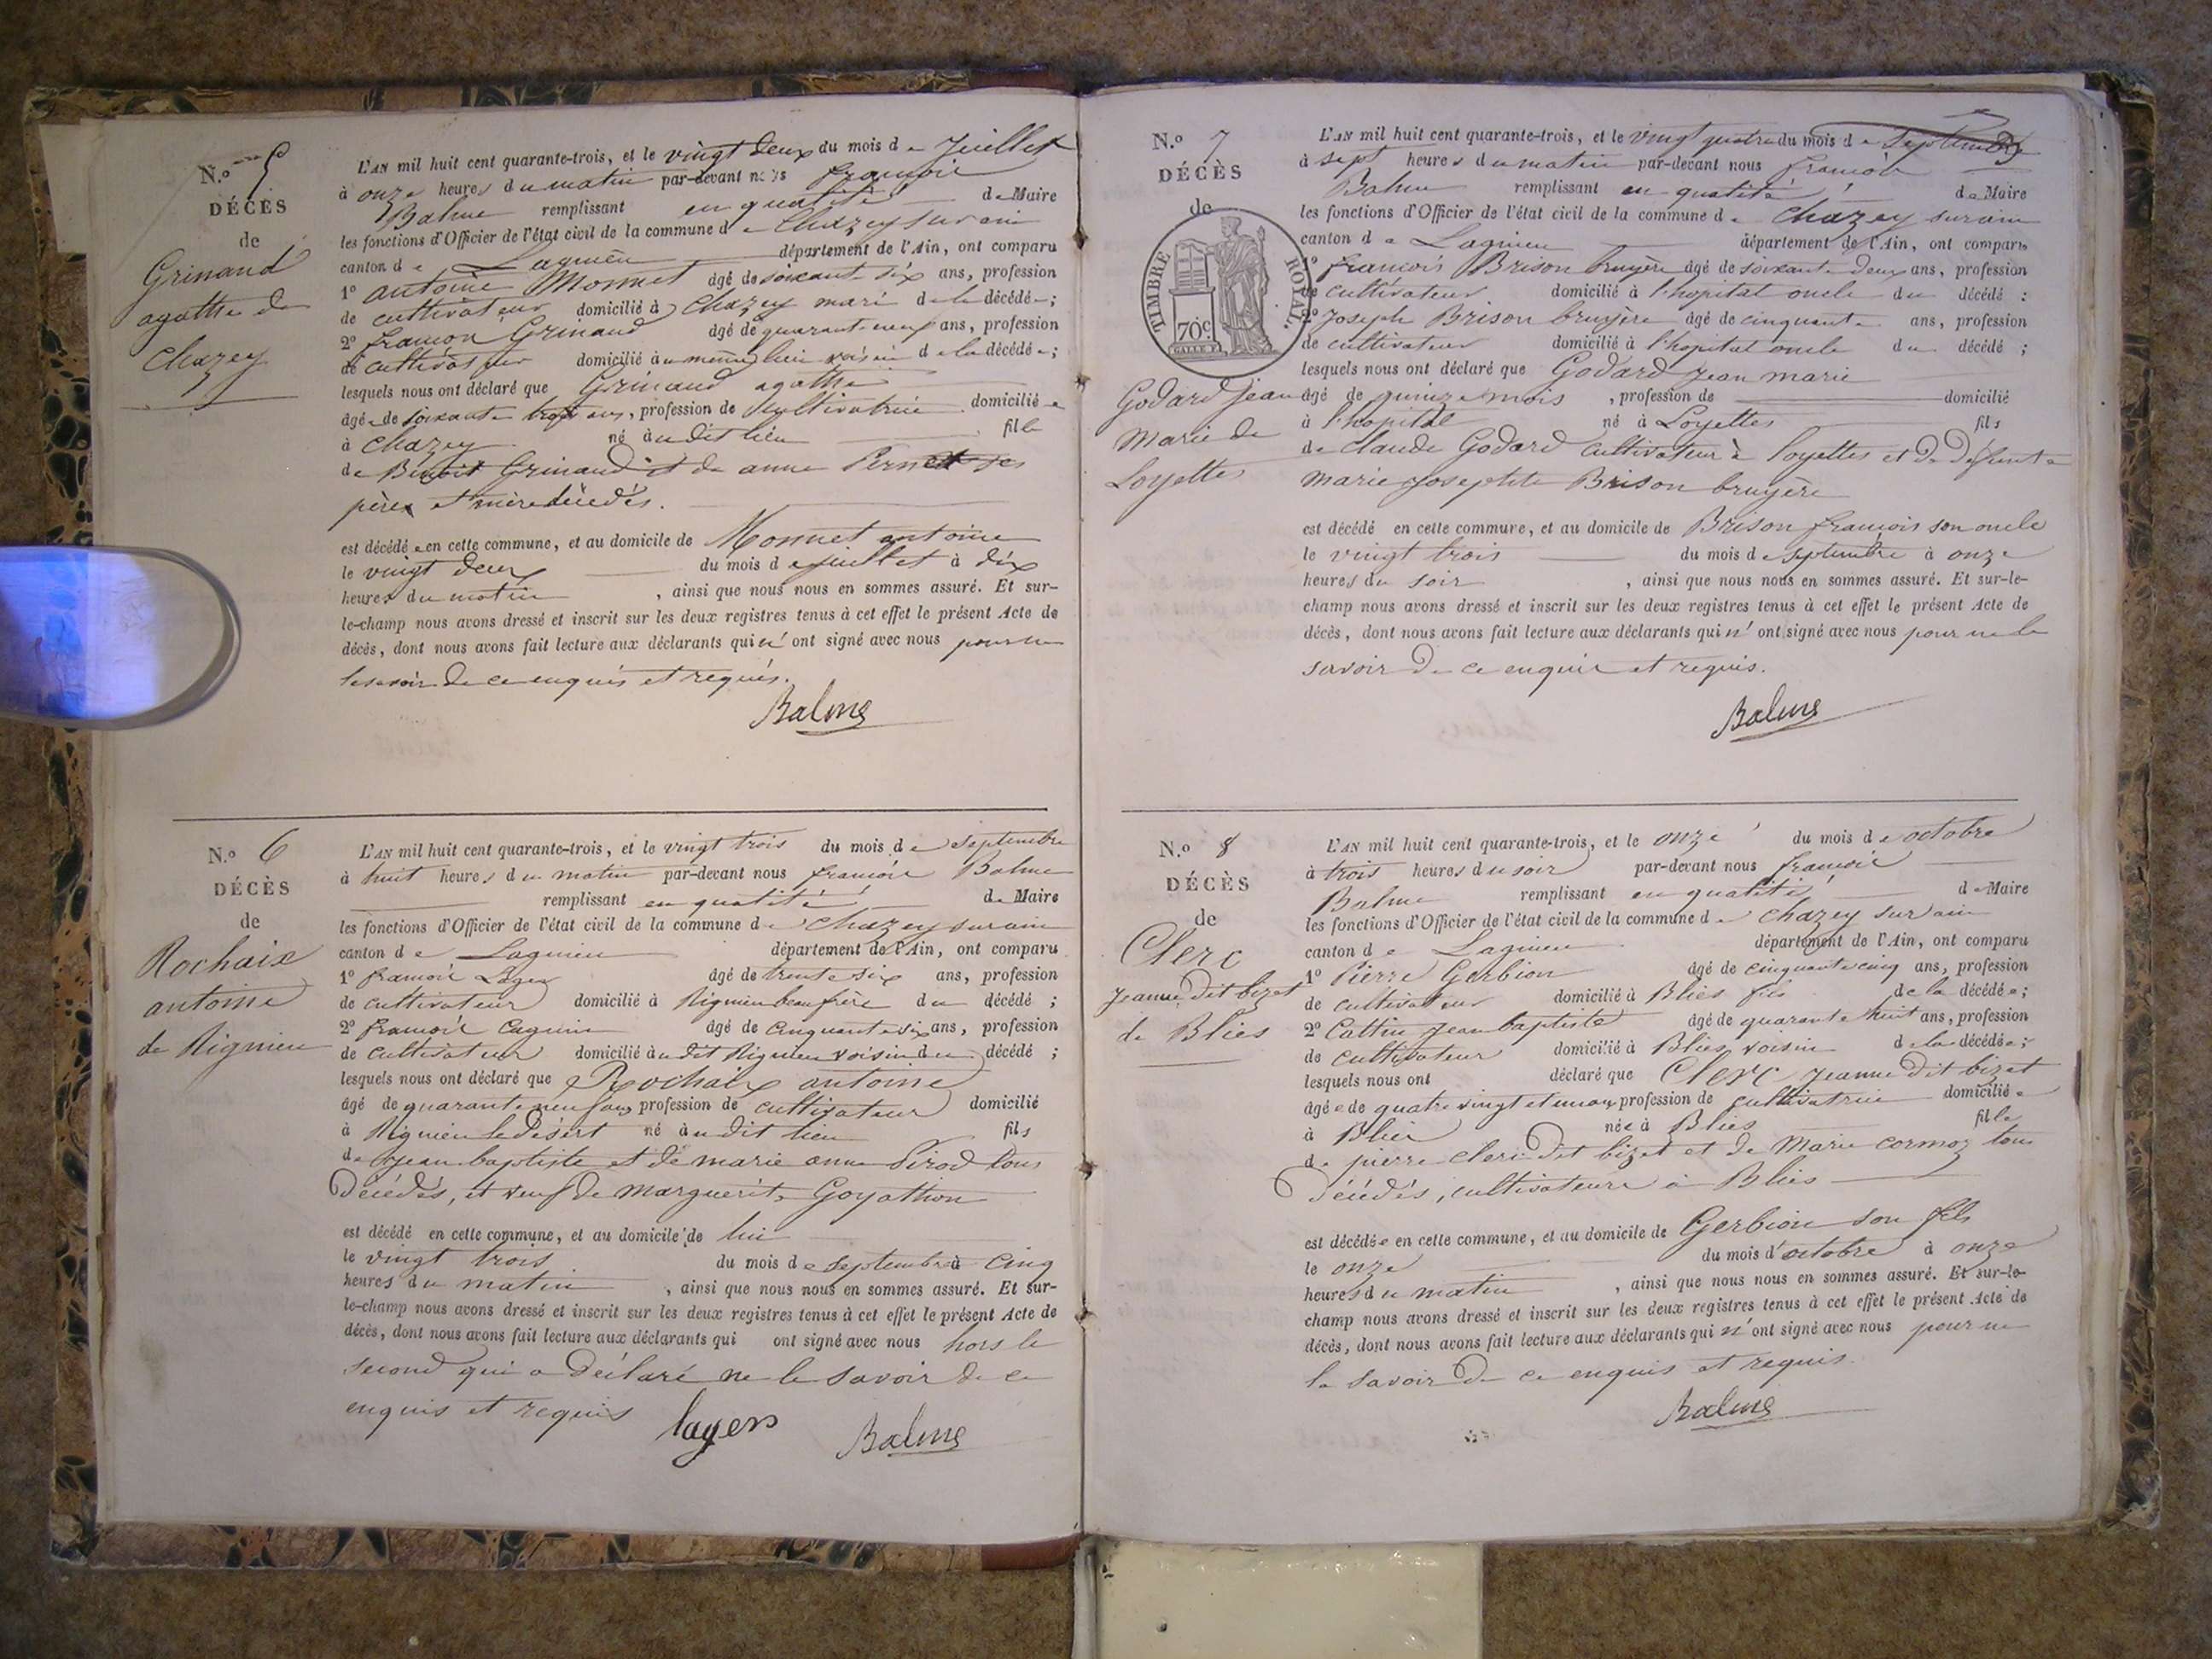 N.° 5
DÉCÈS
de
Grinand
agathe de
Chazey
L'AN mil huit cent quarante-trois, et le vingt deux du mois de Juillet
à onze heures du matin par-devant nous françois
Balme remplissant en qualité de Maire
les fonctions d'Officier de l'état civil de la commune de Chazey sur ain
canton de Lagnieu département de l'Ain, ont comparu
1° antoine Monnet âgé de soixante six ans, profession
de cultivateur domicilié à Chazey mari de la décédée ;
2° françois Grinand âgé de quarante neuf ans, profession
de cultivateur domicilié au même lieu voisin de la décédée ;
lesquels nous ont déclaré que Grinand agathe
âgée de soixante trois ans, profession de cultivatrice domiciliée
à Chazey né audit lieu fille
de Benoit Grinand et de anne Pernet ses
père et mère décédés.
est décédée en cette commune, et au domicile de Monnet antoine
le vingt deux du mois de juillet à dix
heures du matin, ainsi que nous nous en sommes assuré. Et sur-
le-champ nous avons dressé et inscrit sur les deux registres tenus à cet effet le présent Acte de
décès, dont nous avons fait lecture aux déclarants qui n'ont signé avec nous pour ne
le savoir de ce enquis et requis.
Balme
N.° 6
DÉCÈS
de
Rochaix
antoine
de Rignieu
L'AN mil huit cent quarante-trois, et le vingt trois du mois de septembre
à huit heures du matin par-devant nous françois Balme
remplissant en qualité de Maire
les fonctions d'Officier de l'état civil de la commune de Chazey sur ain
canton de Lagnieu département de l'Ain, ont comparu
1° françois Layer âgé de trente six ans, profession
de cultivateur domicilié à Rignieu beau frère du décédé ;
2° françois Cagnin âgé de cinquante six ans, profession
de cultivateur domicilié audit Rignieu voisin du décédé ;
lesquels nous ont déclaré que Rochaix antoine
âgé de quarante neuf ans profession de cultivateur domicilié
à Rignieu le Désert né audit lieu fils
de jean baptiste et de marie anne Pirod tous
décédés, et veuf de marguerite Goyathon
est décédé en cette commune, et au domicile de lui
le vingt trois du mois de septembre à cinq
heures du matin, ainsi que nous nous en sommes assuré. Et sur-
le-champ nous avons dressé et inscrit sur les deux registres tenus à cet effet le présent Acte de
décès, dont nous avons fait lecture aux déclarants qui ont signé avec nous hors le
second qui a déclaré ne le savoir de ce
enquis et requis
layer Balme
N.° 7
DÉCÈS
de
TIMBRE ROYAL.
70c.
Godard Jean
Marie de
Loyettes
L'AN mil huit cent quarante-trois, et le vingt quatre du mois de Septembre
à sept heures du matin par-devant nous françois
Balme remplissant en qualité de Maire
les fonctions d'Officier de l'état civil de la commune de Chazey sur ain
canton de Lagnieu département de l'Ain, ont comparu
1° francois Brison bruyère âgé de soixante deux ans, profession
de cultivateur domicilié à l'hopital oncle du décédé ;
2° Joseph Brison bruyère âgé de cinquante ans, profession
de cultivateur domicilié à l'hopital oncle du décédé ;
lesquels nous ont déclaré que Godard Jean marie
âgé de quinze mois, profession de domicilié
à l'hopital né à Loyettes fils
de Claude Godard cultivateur à loyettes et de défunte
marie Josephte Brison bruyère
est décédé en cette commune, et au domicile de Brison francois son oncle
le vingt trois du mois de septembre à onze
heures du soir, ainsi que nous nous en sommes assuré. Et sur-le-
champ nous avons dressé et inscrit sur les deux registres tenus à cet effet le présent Acte de
décès, dont nous avons fait lecture aux déclarants qui n'ont signé avec nous pour ne le
savoir de ce enquis et requis.
Balme
N.° 8
DÉCÈS
de
Clerc
Jeanne dit bizet
de Blies
L'AN mil huit cent quarante-trois, et le onze du mois de octobre
à trois heures du soir par-devant nous françois
Balme remplissant en qualité de Maire
les fonctions d'Officier de l'état civil de la commune de Chazey sur ain
canton de Lagnieu département de l'Ain, ont comparu
1° Pierre Gerbion âgé de cinquante cinq ans, profession
de cultivateur domicilié à Blies fils de la décédée ;
2° Cottin Jean baptiste âgé de quarante huit ans, profession
de cultivateur domicilié à Blies voisin de la décédée ;
lesquels nous ont déclaré que Clerc Jeanne dit bizet
âgée de quatre vingt et un ans profession de cultivatrice domiciliée
à Blies née à Blies fille
de pierre clerc dit bizet et de Marie cormoz tous
décédés, cultivateurs à Blies
est décédée en cette commune, et au domicile de Gerbion son fils
le onze du mois d'octobre à onze
heures du matin, ainsi que nous nous en sommes assuré. Et sur-le-
champ nous avons dressé et inscrit sur les deux registres tenus à cet effet le présent Acte de
décès, dont nous avons fait lecture aux déclarants qui n'ont signé avec nous pour ne
le savoir de ce enquis et requis.
Balme